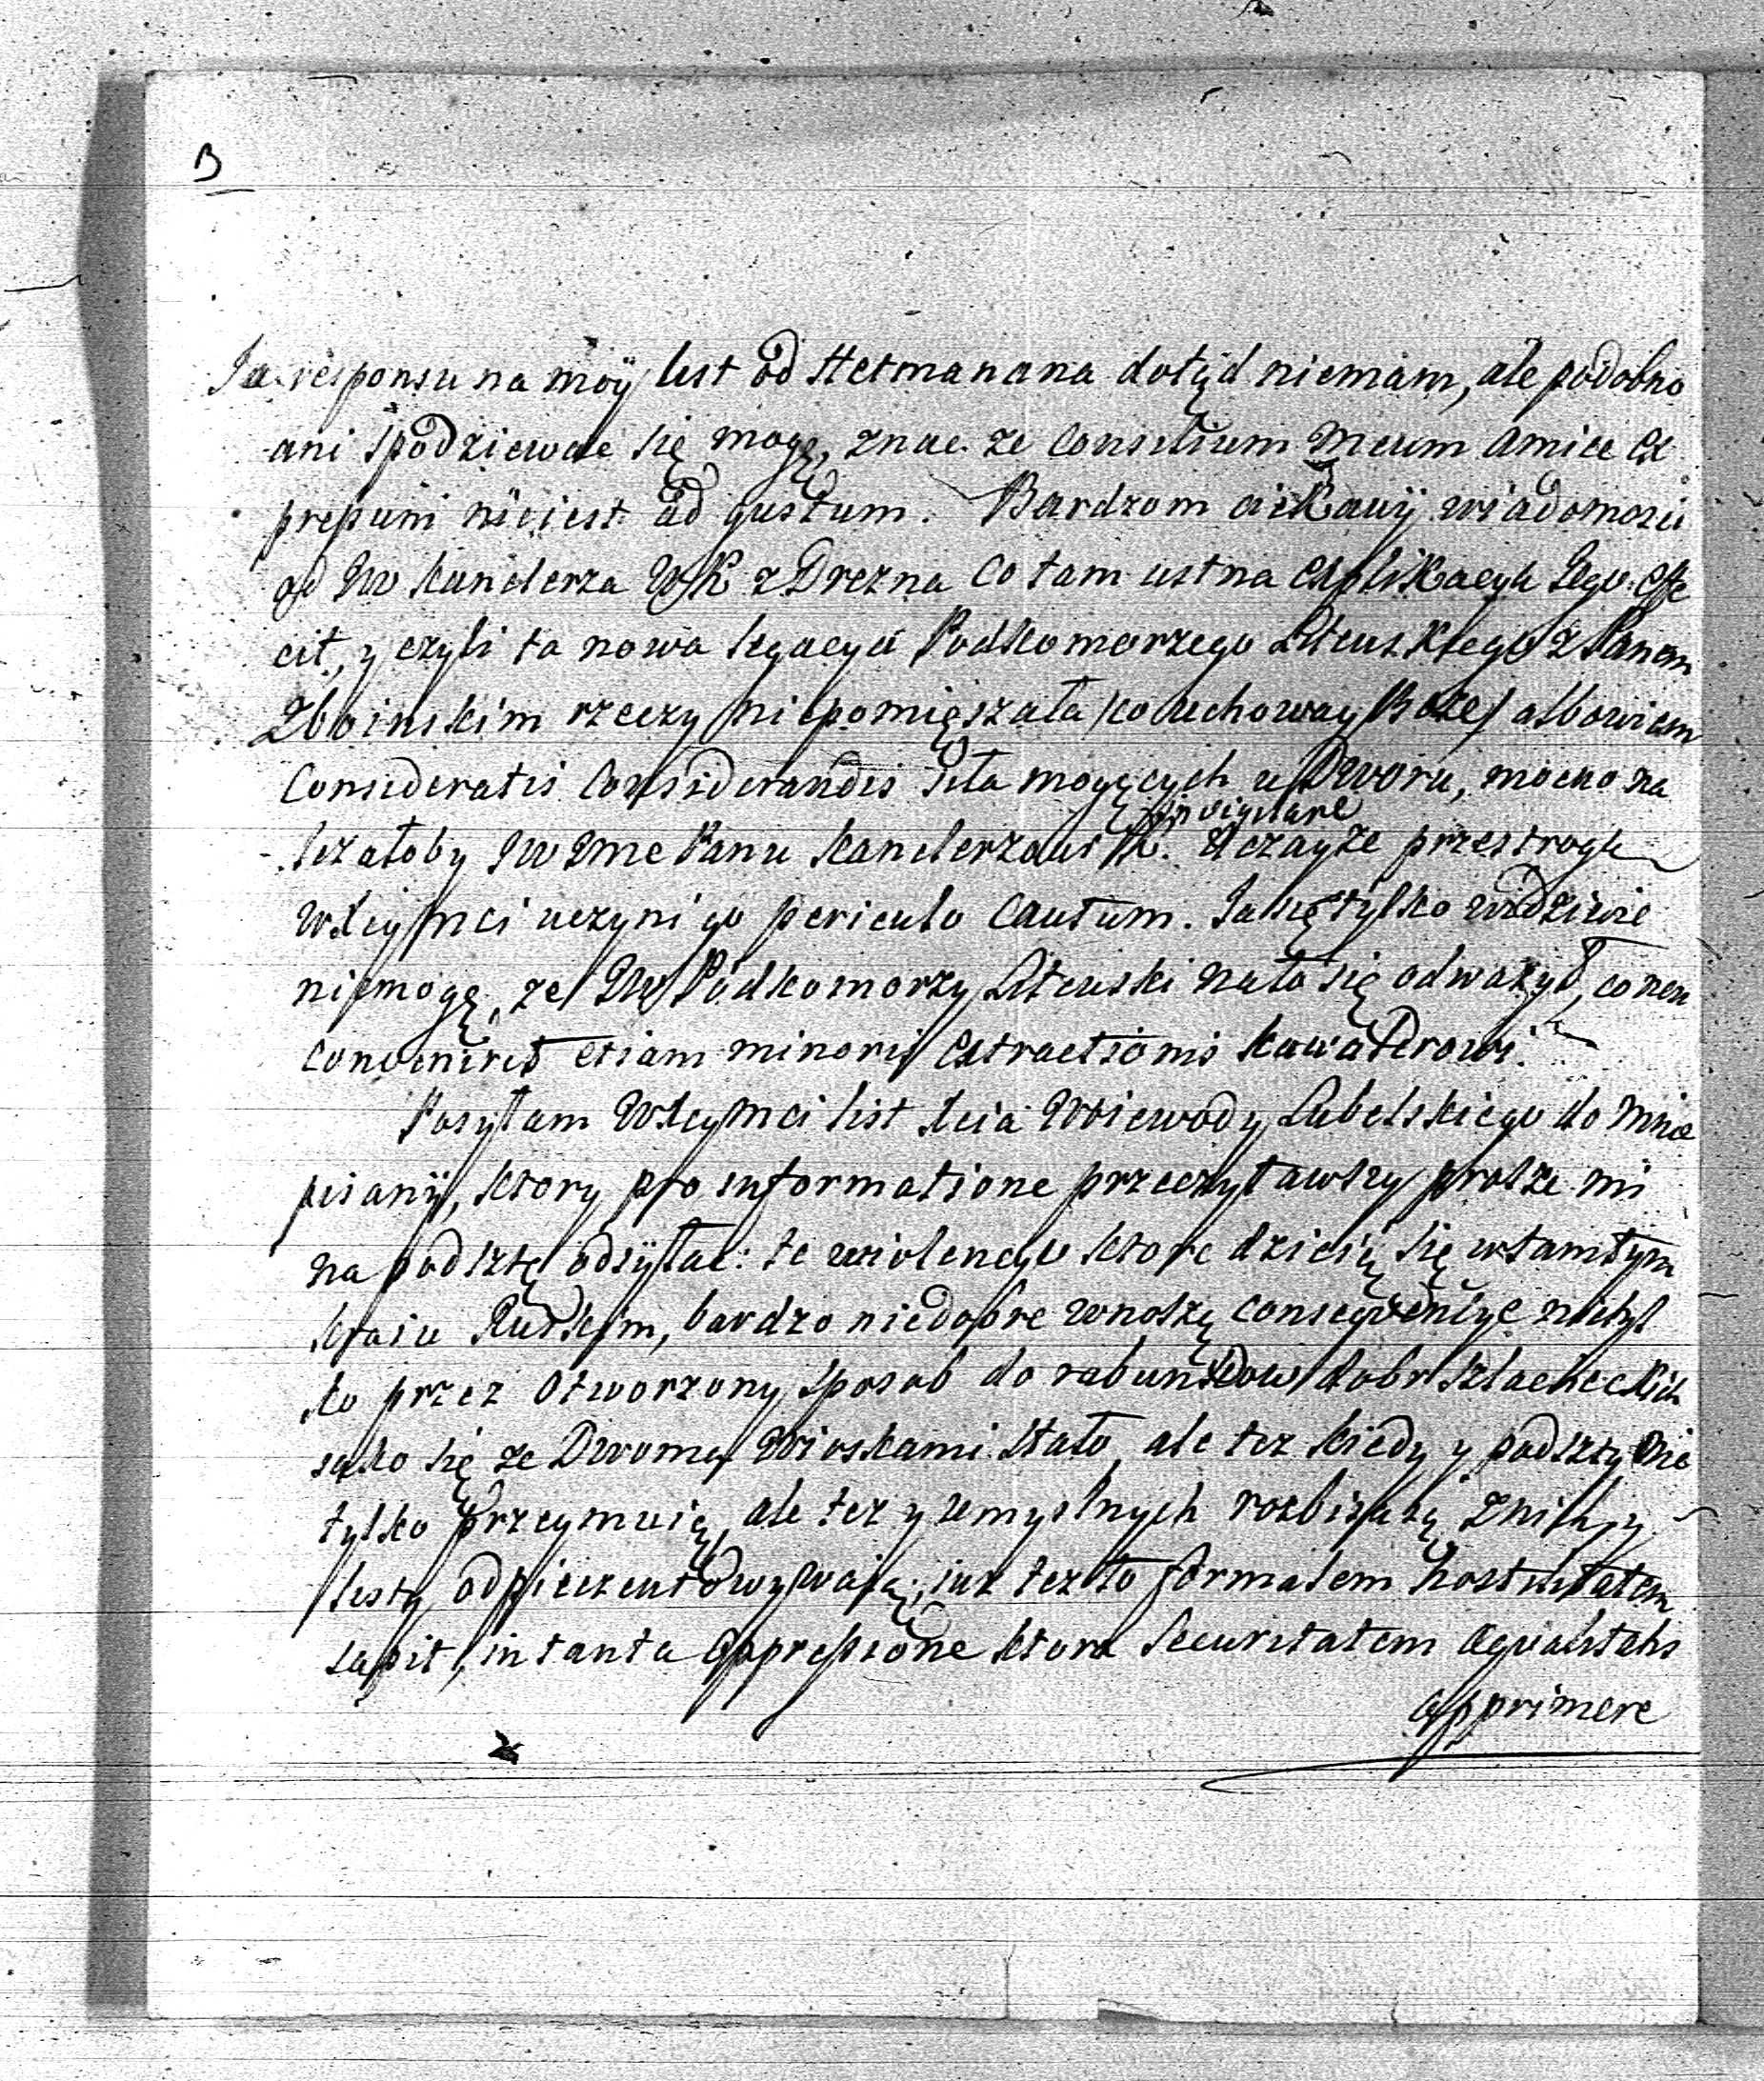 B
Ja responsu na moÿ list od Hetmanana dotąd niemam, ale podobno
ani spodziewac się mogę, znac ze consilium meum amice ex
pressum nieiest ad gustum. Bardzom ciekawÿ wiadomosci
od JW Kanclerza WK z Drezna co tam ustna explikacya Jego effe
cit, y czyli ta nowa legacya Podkomorzego Litewskiego z Panem
Zboinskim rzeczy niepomięszała /co uchoway Boze/ albowiem
Consideratis Considerandis siła mogących u Dworu, mocno na
lezałoby JW Jme Panu Kanclerzowi K. invigilare
aczayze przestroga
WXcyMci uczyni go periculo cautum. Ja się tylko wydziwic
niemogę, ze JW Podkomorzy Litewski nato się odwazył, co non
conveniret etiam minoris extractionis kawalerowi.
Posyłam WXcyMci list Xcia Woiewody Lubelskiego do mnie
pisanÿ, ktory pro informatione przeczytawszy prosze mi
na podsztę odsyłac: te wiolencye ktore dzieią się w tamtym
kraiu Ruskim, bardzo niedobre wnoszą consequencye nietyl
ko przez otworzony sposob do rabunkow dobr szlacheckich
iako się ze Dwoma Wioskami stało, ale tez kiedy y podszty nie
tylko przeymuią, ale tez y umyslnych rozbiiaią z nich, y
listy odpieczentowywaią, iuz tez to formalem hostilitatem
sapit, in tanta oppressione ktora securitatem aequalitatis
opprimere